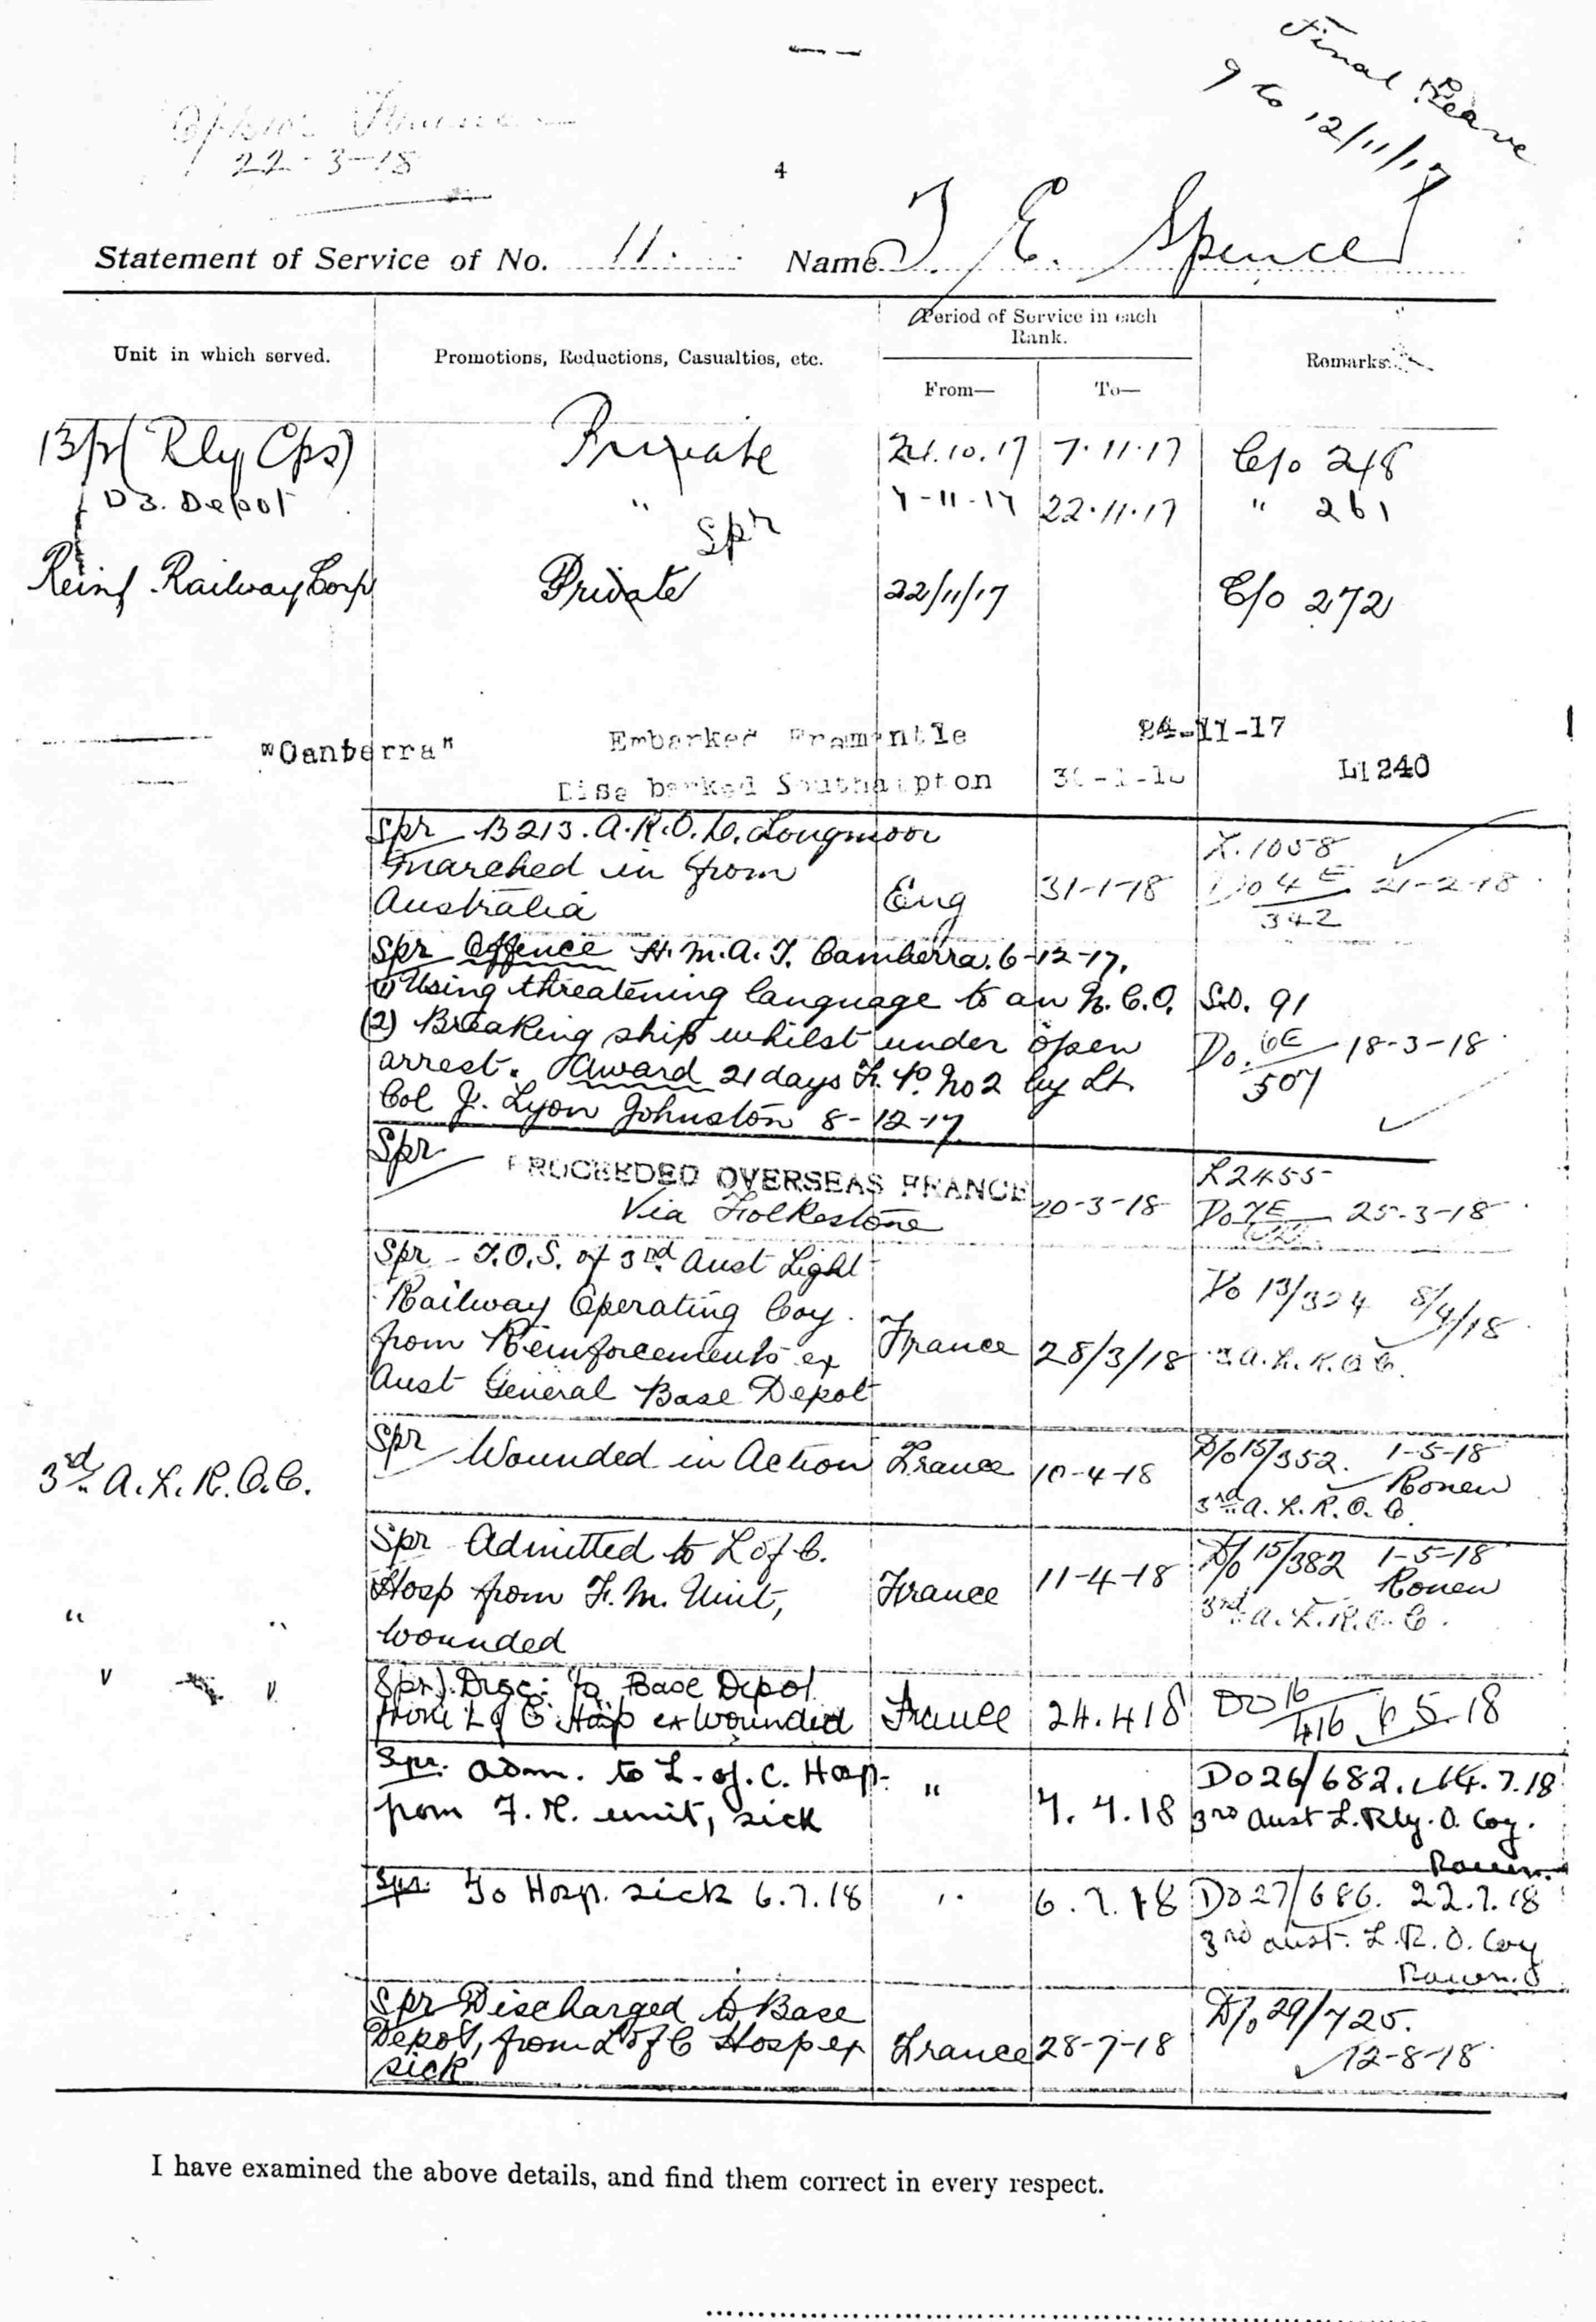 Final Leave
9 to 12/11/17
22-3-18
4
Statement of Service of No. 11. Name J. E. Spence
Unit in which served.
Promotions, Reductions, Casualties, etc.
Period of Service in each Rank.
From—
To—
Remarks.
(Rly Cps) Private 24.10.17 7.11.17 C/o 248
D3. Depot " 7-11-17 22.11.17 " 261
Spr
Reinf. Railway Corp Private 22/11/17 C/o 272
"Canberra" Embarked Fremantle 24-11-17
Disembarked Southampton L1240
Spr B213. A.R.O.D. Longmoor
marched in from
Australia Eng 31-1-18
X.1058
Do 4E 21-2-18
342
Spr Offence H.M.A.T. Camberra. 6-12-17.
(1) Using threatening language to an N.C.O. S.O. 91
(2) Breaking ship whilst under open
arrest. Award 21 days F.P. No 2 by Lt.
Col J. Lyon Johnston 8-12-17
Do. 6E 18-3-18
507
Spr PROCEEDED OVERSEAS FRANCE
Via Folkestone 20-3-18
L2455
Do 7E 25-3-18
Spr - T.O.S. of 3rd Aust Light
Railway Operating Coy.
from Reinforcements ex
Aust General Base Depot
France 28/3/18
Do 13/324 8/4/18
3 A.L.R.O.C.
3rd A.L.R.O.C.
Spr Wounded in Action France 10-4-18
D/o 15/352. 1-5-18
Rouen
3rd A.L.R.O.C.
" "
Spr Admitted to L of C.
Hosp from F.M. Unit,
wounded
France 11-4-18
D/o 15/382 1-5-18
Rouen
3rd A.L.R.O.C.
" "
Spr. Disc: to Base Depot
from L of C Hosp ex wounded France 24.4.18
DO 16 6.5.18
416
Spr. adm. to L. of. C. Hosp.
from F.M. unit, sick
" 7.7.18
Do 26/682. 14.7.18
3rd Aust L. Rly. O. Coy.
Rouen.
Spr. To Hosp. sick 6.7.18 " 6.7.18
Do 27/686. 22.7.18
3rd Aust. L.R.O. Coy
Rouen.
Spr Discharged to Base
Depot, from L of C Hosp ex
sick
France 28-7-18
D/o 29/725.
12-8-18
I have examined the above details, and find them correct in every respect.